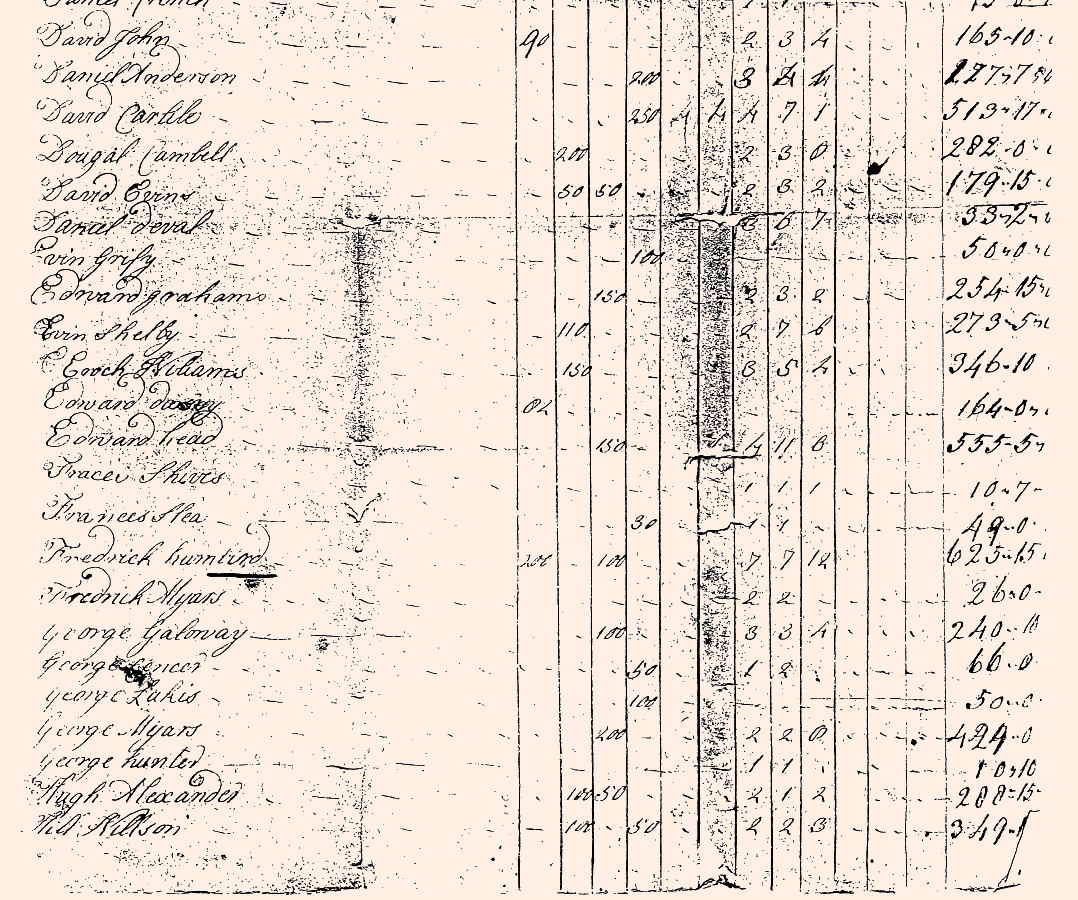 David John 90 2 3 4 165-10
Daniel Anderson 200 3 4 4 127-7
David Carlile 250 4 4 4 7 1 513-17
Dougal Cambell 200 2 3 0 282-0
David Evins 50 50 2 3 2 179-15
Daniel deval 3 6 7 33-2
Evin Grify 100 50-0
Edward grahams 150 2 3 2 254-15
Evin Shelby 110 2 7 6 273-5
Enoch Williams 150 3 5 4 346-10
Edward 164-0
Edward head 150 4 11 6 555-5
Fracei Shives 1 1 1 10-7
Frances Slea 30 1 1 49-0
Fredrick humtird 200 100 7 7 12 625-15
Fredrick Myars 2 2 26-0
George Galoway 100 3 3 4 240-10
George 50 1 2 66-0
George Lakis 100 50-0
George Myars 200 2 2 0 424-0
George hunter 1 1 10-10
Hugh Alexander 100 50 2 1 2 288-15
Willson 100 50 2 2 3 349-1